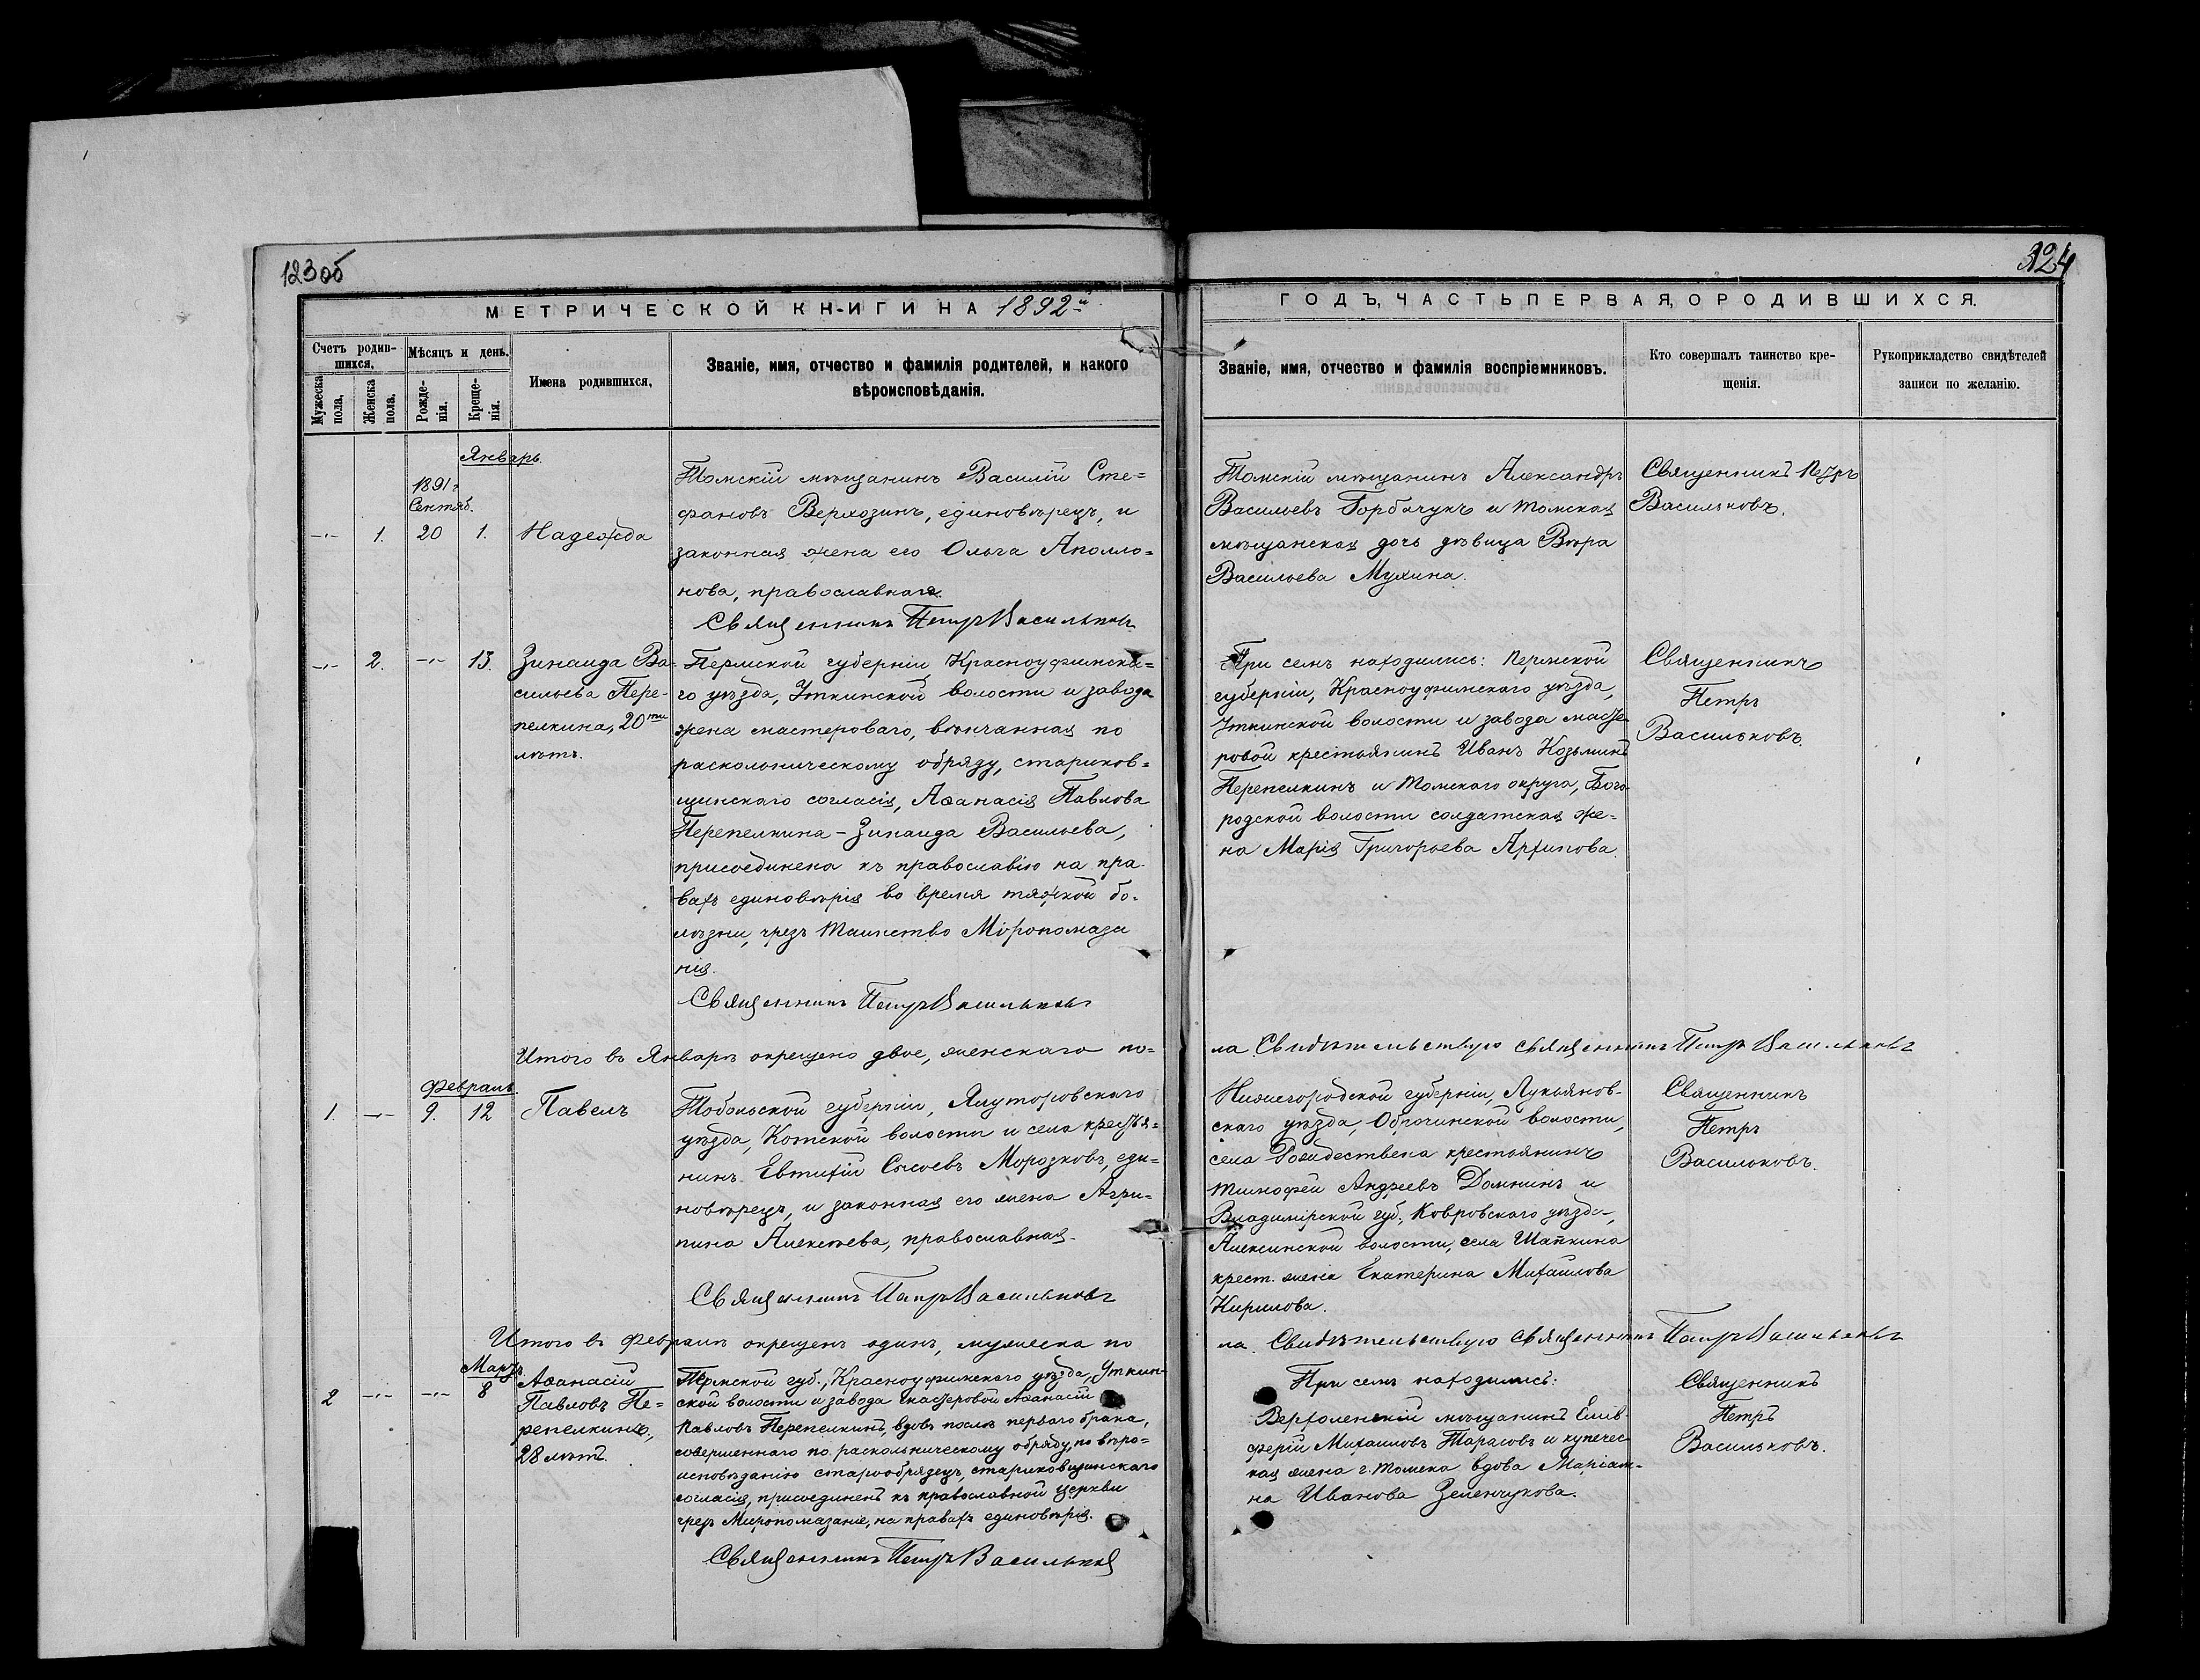 123 об
124
МЕТРИЧЕСКОЙ КНИГИ НА 1892й
ГОДЪ, ЧАСТЬ ПЕРВАЯ, О РОДИВШИХСЯ.
Счетъ родив-
шихся,
Мужеска
пола.
Женска
пола.
Мѣсяцъ и день.
Рожде-
нія.
Креще-
нія.
Имена родившихся,
Званіе, имя, отчество и фамилія родителей, и какого
вѣроисповѣданія.
Званіе, имя, отчество и фамилія воспріемниковъ.
Кто совершалъ таинство кре-
щенія.
Рукоприкладство свидѣтелей
записи по желанію.
Январь.
1891 г
Сентяб.
-"- 1. 20 1. Надежда
Томскій мѣщанинъ Василій Сте=
фановъ Верхозинъ, единовѣрецъ, и
законная жена его Ольга Аполло=
нова, православная.
Священникъ Петръ Васильковъ
Томскій мѣщанинъ Александръ
Васильевъ Горбачукъ и томская
мѣщанская дочь дѣвица Вѣра
Васильева Мухина.
Священникъ Петръ
Васильковъ.
-"- 2. -"- 13. Зинаида Ва-
сильева Пере-
пелкина, 20ти
лѣтъ.
Пермской губерніи, Красноуфимска=
го уѣзда, Уткинской волости и завода
жена мастероваго, вѣнчанная по
раскольническому обряду, стариков=
щинскаго согласія, Аѳанасія Павлова
Перепелкина – Зинаида Васильева,
присоединена къ православію на пра-
вахъ единовѣрія во время тяжкой бо-
лѣзни, чрезъ таинство Мѵропомаза
нія.
Священникъ Петръ Васильковъ
При семъ находились: Пермской
губерніи, Красноуфимскаго уѣзда,
Уткинской волости и завода масте-
ровой крестьянинъ Иванъ Козьминъ
Перепелкинъ и Томскаго округа, Бого-
родской волости солдатская же-
на Марія Григорьева Архипова.
Священникъ
Петръ
Васильковъ.
Итого въ Январѣ окрещено двое, женскаго по=
ла. Свидѣтельствую священникъ Петръ Васильковъ
Февраль.
1. -"- 9. 12 Павелъ
Тобольской губерніи, Ялуторовскаго
уѣзда, Котской волости и села крестья=
нинъ Евтихій Сысоевъ Морозковъ, еди=
новѣрецъ, и законная его жена Агри=
пина Алексѣева, православная.
Священникъ Петръ Васильковъ
Нижегородской губерніи, Лукьянов-
скаго уѣзда, Оброчинской волости,
села Рождествена крестьянинъ
Тимофей Андреевъ Домнинъ и
Владимірской губ., Ковровскаго уѣзда,
Алексинской волости, села Шапкина
крест. жена Екатерина Михаилова
Кирилова.
Священникъ
Петръ
Васильковъ.
Итого въ Февралѣ окрещенъ одинъ, мужеска по
ла. Свидѣтельствую священникъ Петръ Васильковъ
Мартъ.
2 -"- -"- 8 Аѳанасій
Павловъ Пе=
репелкинъ,
28 лѣтъ.
Пермской губ., Красноуфимскаго уѣзда, Уткин-
ской волости и завода мастеровой Аѳанасій
Павловъ Перепелкинъ, вдовъ послѣ перваго брака,
совершеннаго по раскольническому обряду, по вѣро=
исповѣданію старообрядецъ, стариковщинскаго
согласія, присоединенъ къ православной церкви
чрезъ Миропомазаніе, на правахъ единовѣрія.
Священникъ Петръ Васильковъ
При семъ находились:
Верхоленскій мѣщанинъ Елев-
ферій Михаиловъ Тарасовъ и купечес-
кая жена г. Томска вдова Маріам-
на Иванова Зеленчукова.
Священникъ
Петръ
Васильковъ.